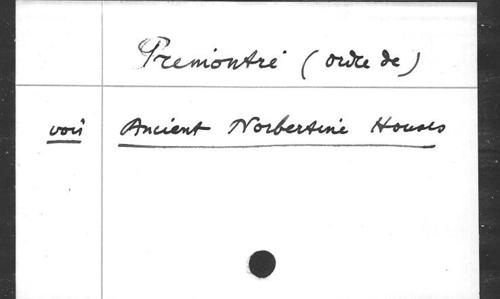 Premontré (ordre de)
voir Ancient Norbertine Houses